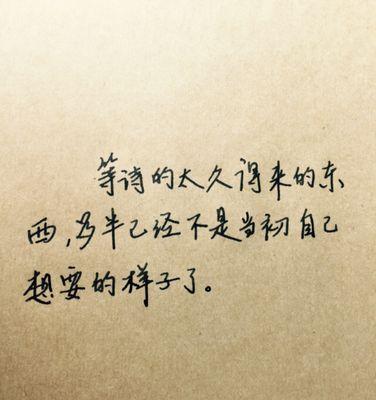 等待的太久得来的东
西,多半已经不是当初自己
想要的样子了。